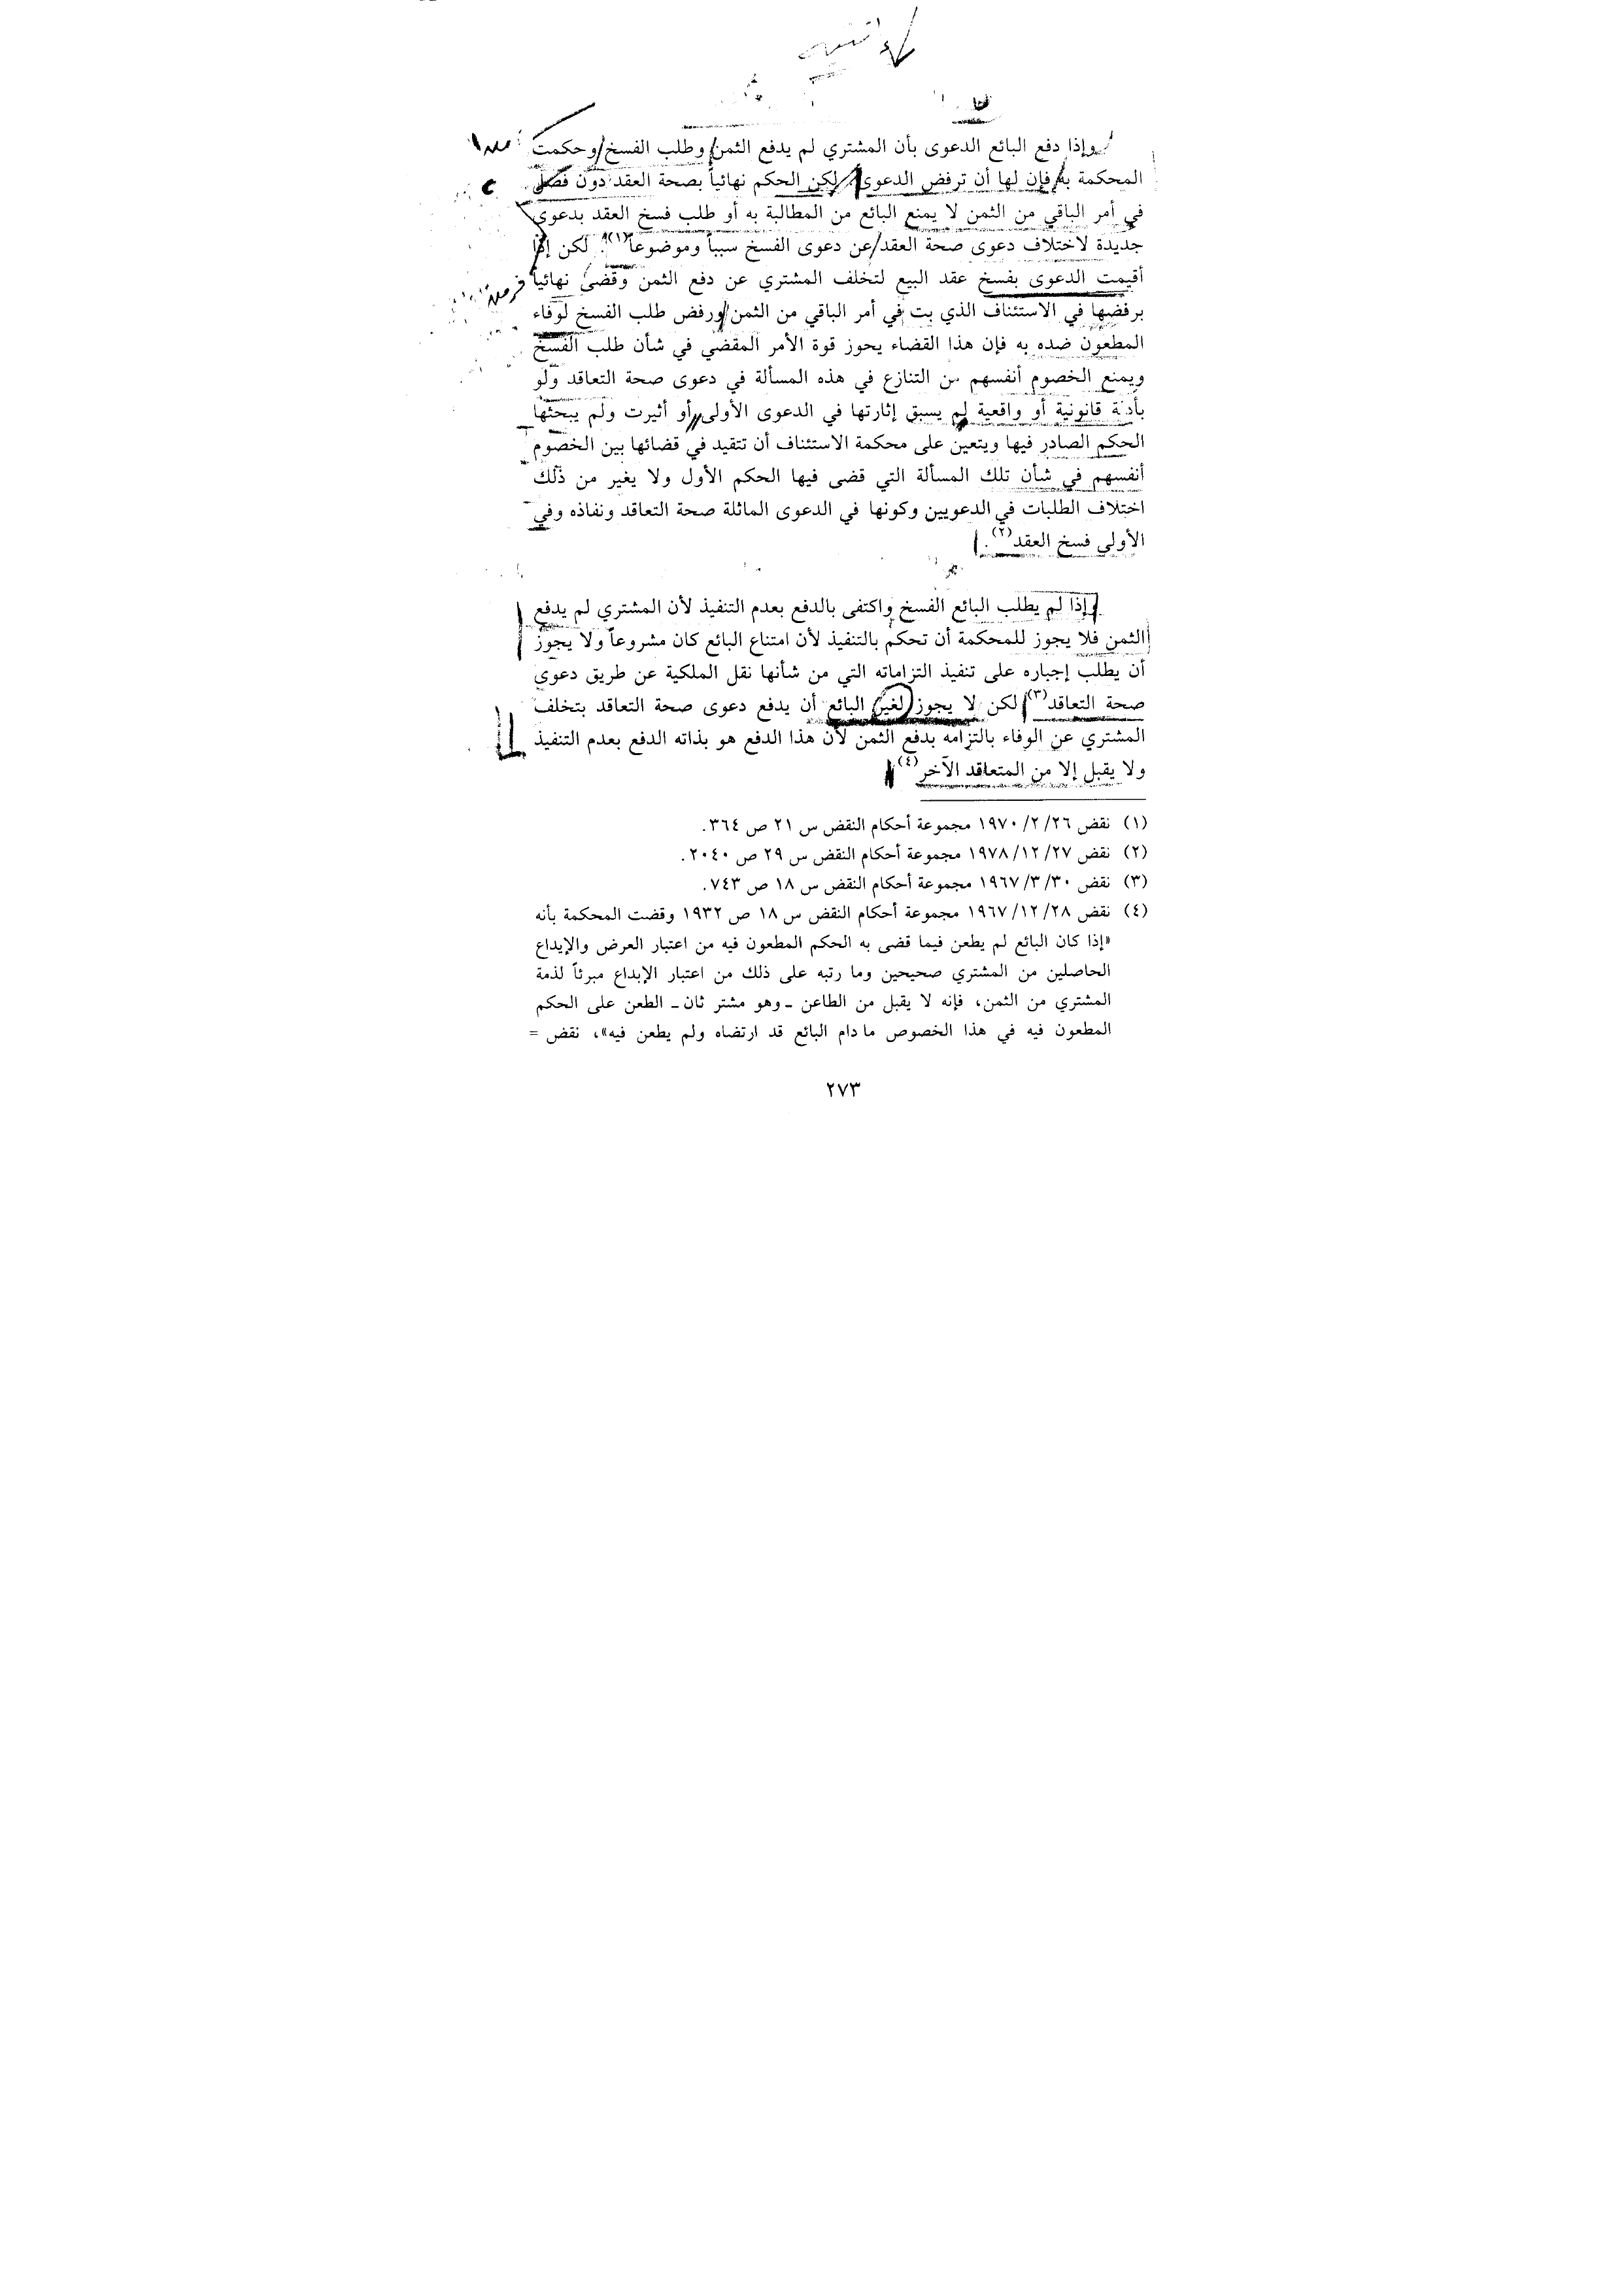 وإذا دفع البائع الدعوى بأن المشتري لم يدفع الثمن وطلب الفسخ وحكمت
المحكمة به فإن لها أن ترفض الدعوى لكن الحكم نهائياً بصحة العقد دون فصل
في أمر الباقي من الثمن لا يمنع البائع من المطالبة به أو طلب فسخ العقد بدعوى
جديدة لاختلاف دعوى صحة العقد عن دعوى الفسخ سبباً وموضوعاً(١). لكن إذا
أقيمت الدعوى بفسخ عقد البيع لتخلف المشتري عن دفع الثمن وقضى نهائياً
برفضها في الاستئناف الذي بت في أمر الباقي من الثمن ورفض طلب الفسخ لوفاء
المطعون ضده به فإن هذا القضاء يحوز قوة الأمر المقضي في شأن طلب الفسخ
ويمنع الخصوم أنفسهم من التنازع في هذه المسألة في دعوى صحة التعاقد ولو
بأدلة قانونية أو واقعية لم يسبق إثارتها في الدعوى الأولى أو أثيرت ولم يبحثها
الحكم الصادر فيها ويتعين على محكمة الاستئناف أن تتقيد في قضائها بين الخصوم
أنفسهم في شأن تلك المسألة التي قضى فيها الحكم الأول ولا يغير من ذلك
اختلاف الطلبات في الدعويين وكونها في الدعوى الماثلة صحة التعاقد ونفاذه وفي
الأولى فسخ العقد(٢).
إذا لم يطلب البائع الفسخ واكتفى بالدفع بعدم التنفيذ لأن المشتري لم يدفع
الثمن فلا يجوز للمحكمة أن تحكم بالتنفيذ لأن امتناع البائع كان مشروعاً ولا يجوز
أن يطلب إجباره على تنفيذ التزاماته التي من شأنها نقل الملكية عن طريق دعوى
صحة التعاقد(٣) لكن لا يجوز لغير البائع أن يدفع دعوى صحة التعاقد بتخلف
المشتري عن الوفاء بالتزامه بدفع الثمن لأن هذا الدفع هو بذاته الدفع بعدم التنفيذ
ولا يقبل إلا من المتعاقد الآخر(٤)
(١) نقض ٢٦/ ٢/ ١٩٧٠ مجموعة أحكام النقض س ٢١ ص ٣٦٤.
(٢) نقض ٢٧/ ١٢/ ١٩٧٨ مجموعة أحكام النقض س ٢٩ ص ٢٠٤٠.
(٣) نقض ٣٠/ ٣/ ١٩٦٧ مجموعة أحكام النقض س ١٨ ص ٧٤٣.
(٤) نقض ٢٨/ ١٢/ ١٩٦٧ مجموعة أحكام النقض س ١٨ ص ١٩٣٢ وقضت المحكمة بأنه
«إذا كان البائع لم يطعن فيما قضى به الحكم المطعون فيه من اعتبار العرض والإيداع
الحاصلين من المشتري صحيحين وما رتبه على ذلك من اعتبار الإبداع مبرئاً لذمة
المشتري من الثمن، فإنه لا يقبل من الطاعن ـ وهو مشتر ثان ـ الطعن على الحكم
المطعون فيه في هذا الخصوص ما دام البائع قد ارتضاه ولم يطعن فيه»، نقض =
٢٧٣